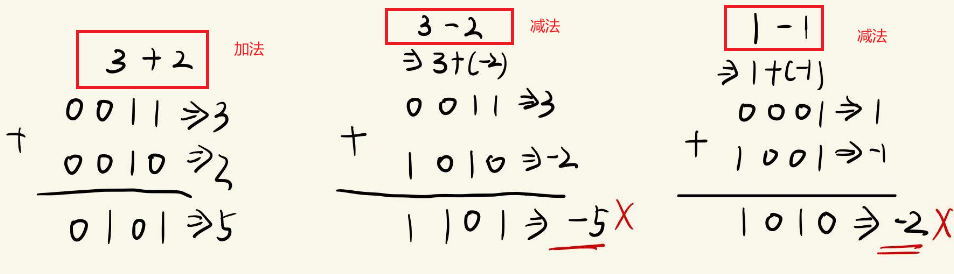 3 + 2 加法
0 0 1 1 ⇒ 3
+
0 0 1 0 ⇒ 2
0 1 0 1 ⇒ 5
3 - 2 减法
⇒ 3+(-2)
0 0 1 1 ⇒ 3
+
1 0 1 0 ⇒ -2
1 1 0 1 ⇒ -5 X
1 - 1 减法
⇒ 1+(-1)
0 0 0 1 ⇒ 1
+
1 0 0 1 ⇒ -1
1 0 1 0 ⇒ -2 X